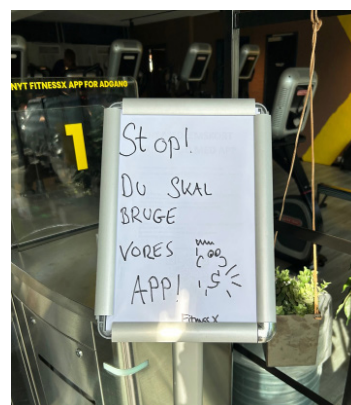 NYT FITNESSX APP FOR ADGANG
1
Stop!
DU SKAL
BRUGE
VORES
APP!
FitnessX